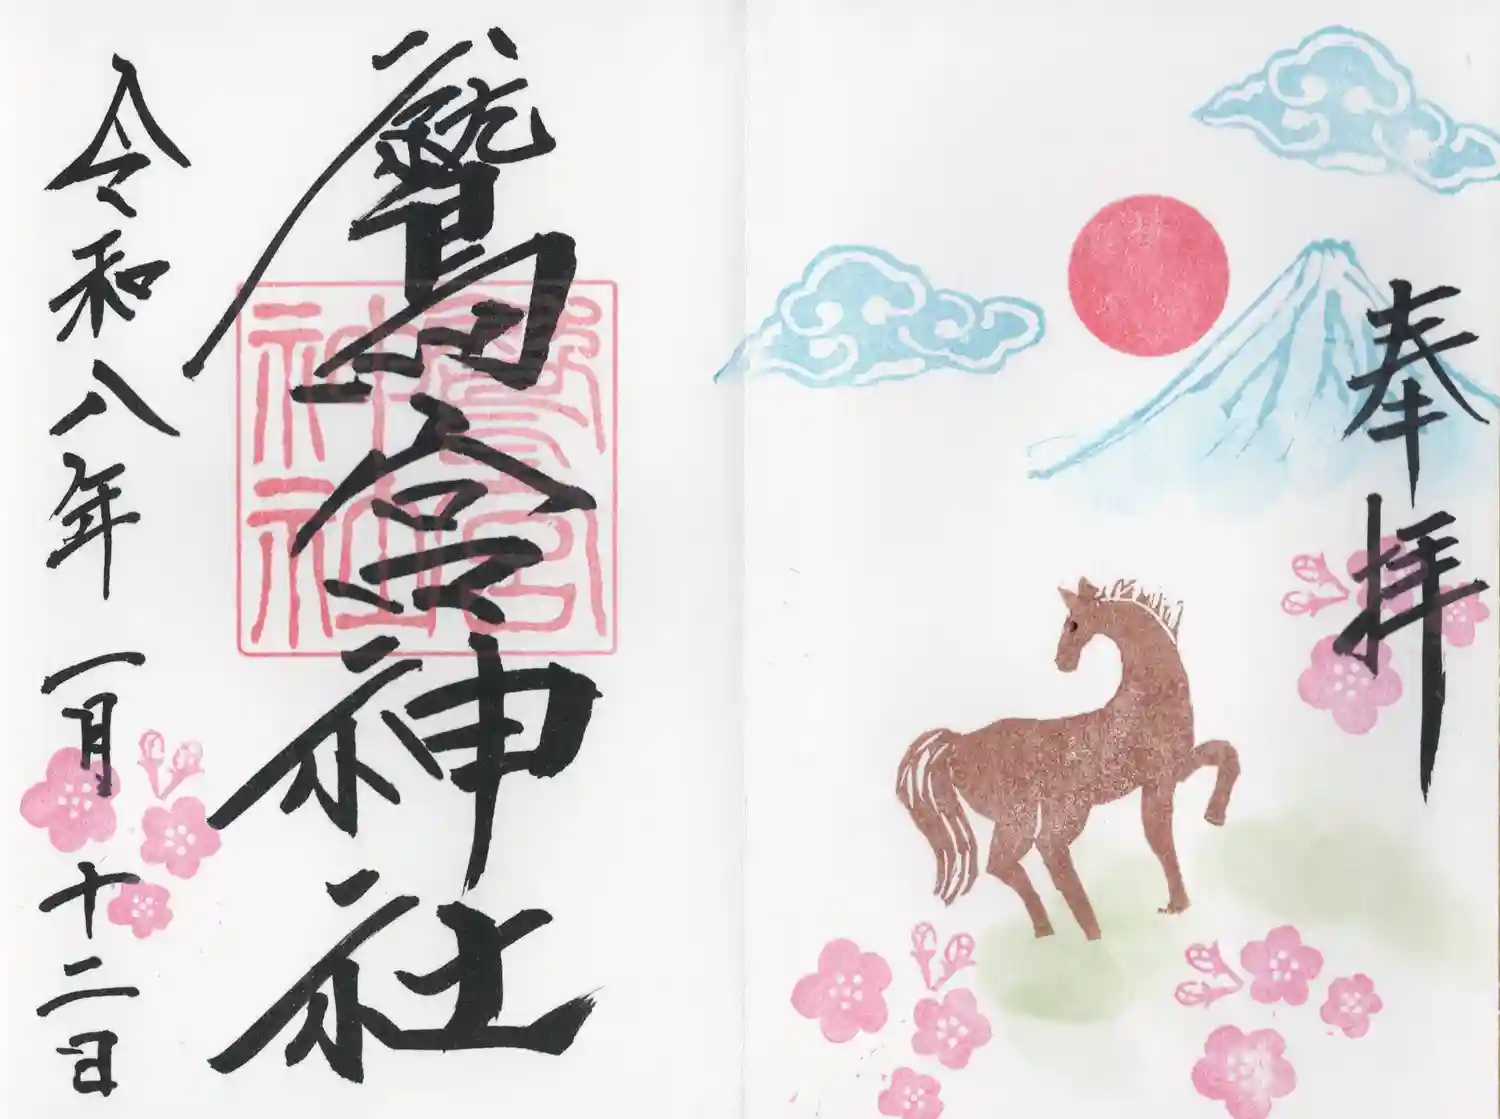 奉拝
鷲宮神社
鷲宮
神社
令和八年一月十二日